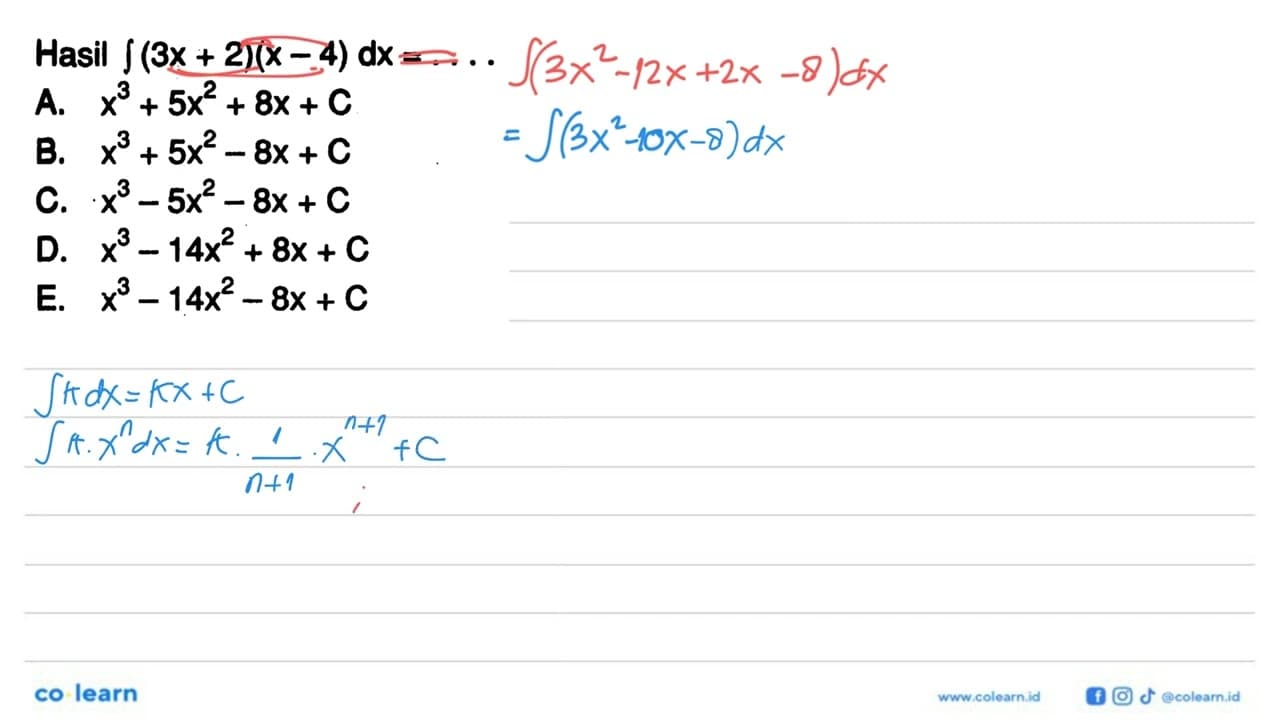 Hasil ∫(3x + 2)(x – 4) dx = ....
A. x³ + 5x² + 8x + C
B. x³ + 5x² – 8x + C
C. x³ – 5x² – 8x + C
D. x³ – 14x² + 8x + C
E. x³ – 14x² – 8x + C
∫(3x² - 12x + 2x - 8) dx
= ∫(3x² - 10x - 8) dx
∫k dx = kx + C
∫k. xⁿ dx = k. 1/(n+1) . xⁿ⁺¹ + C
co learn
www.colearn.id
@colearn.id